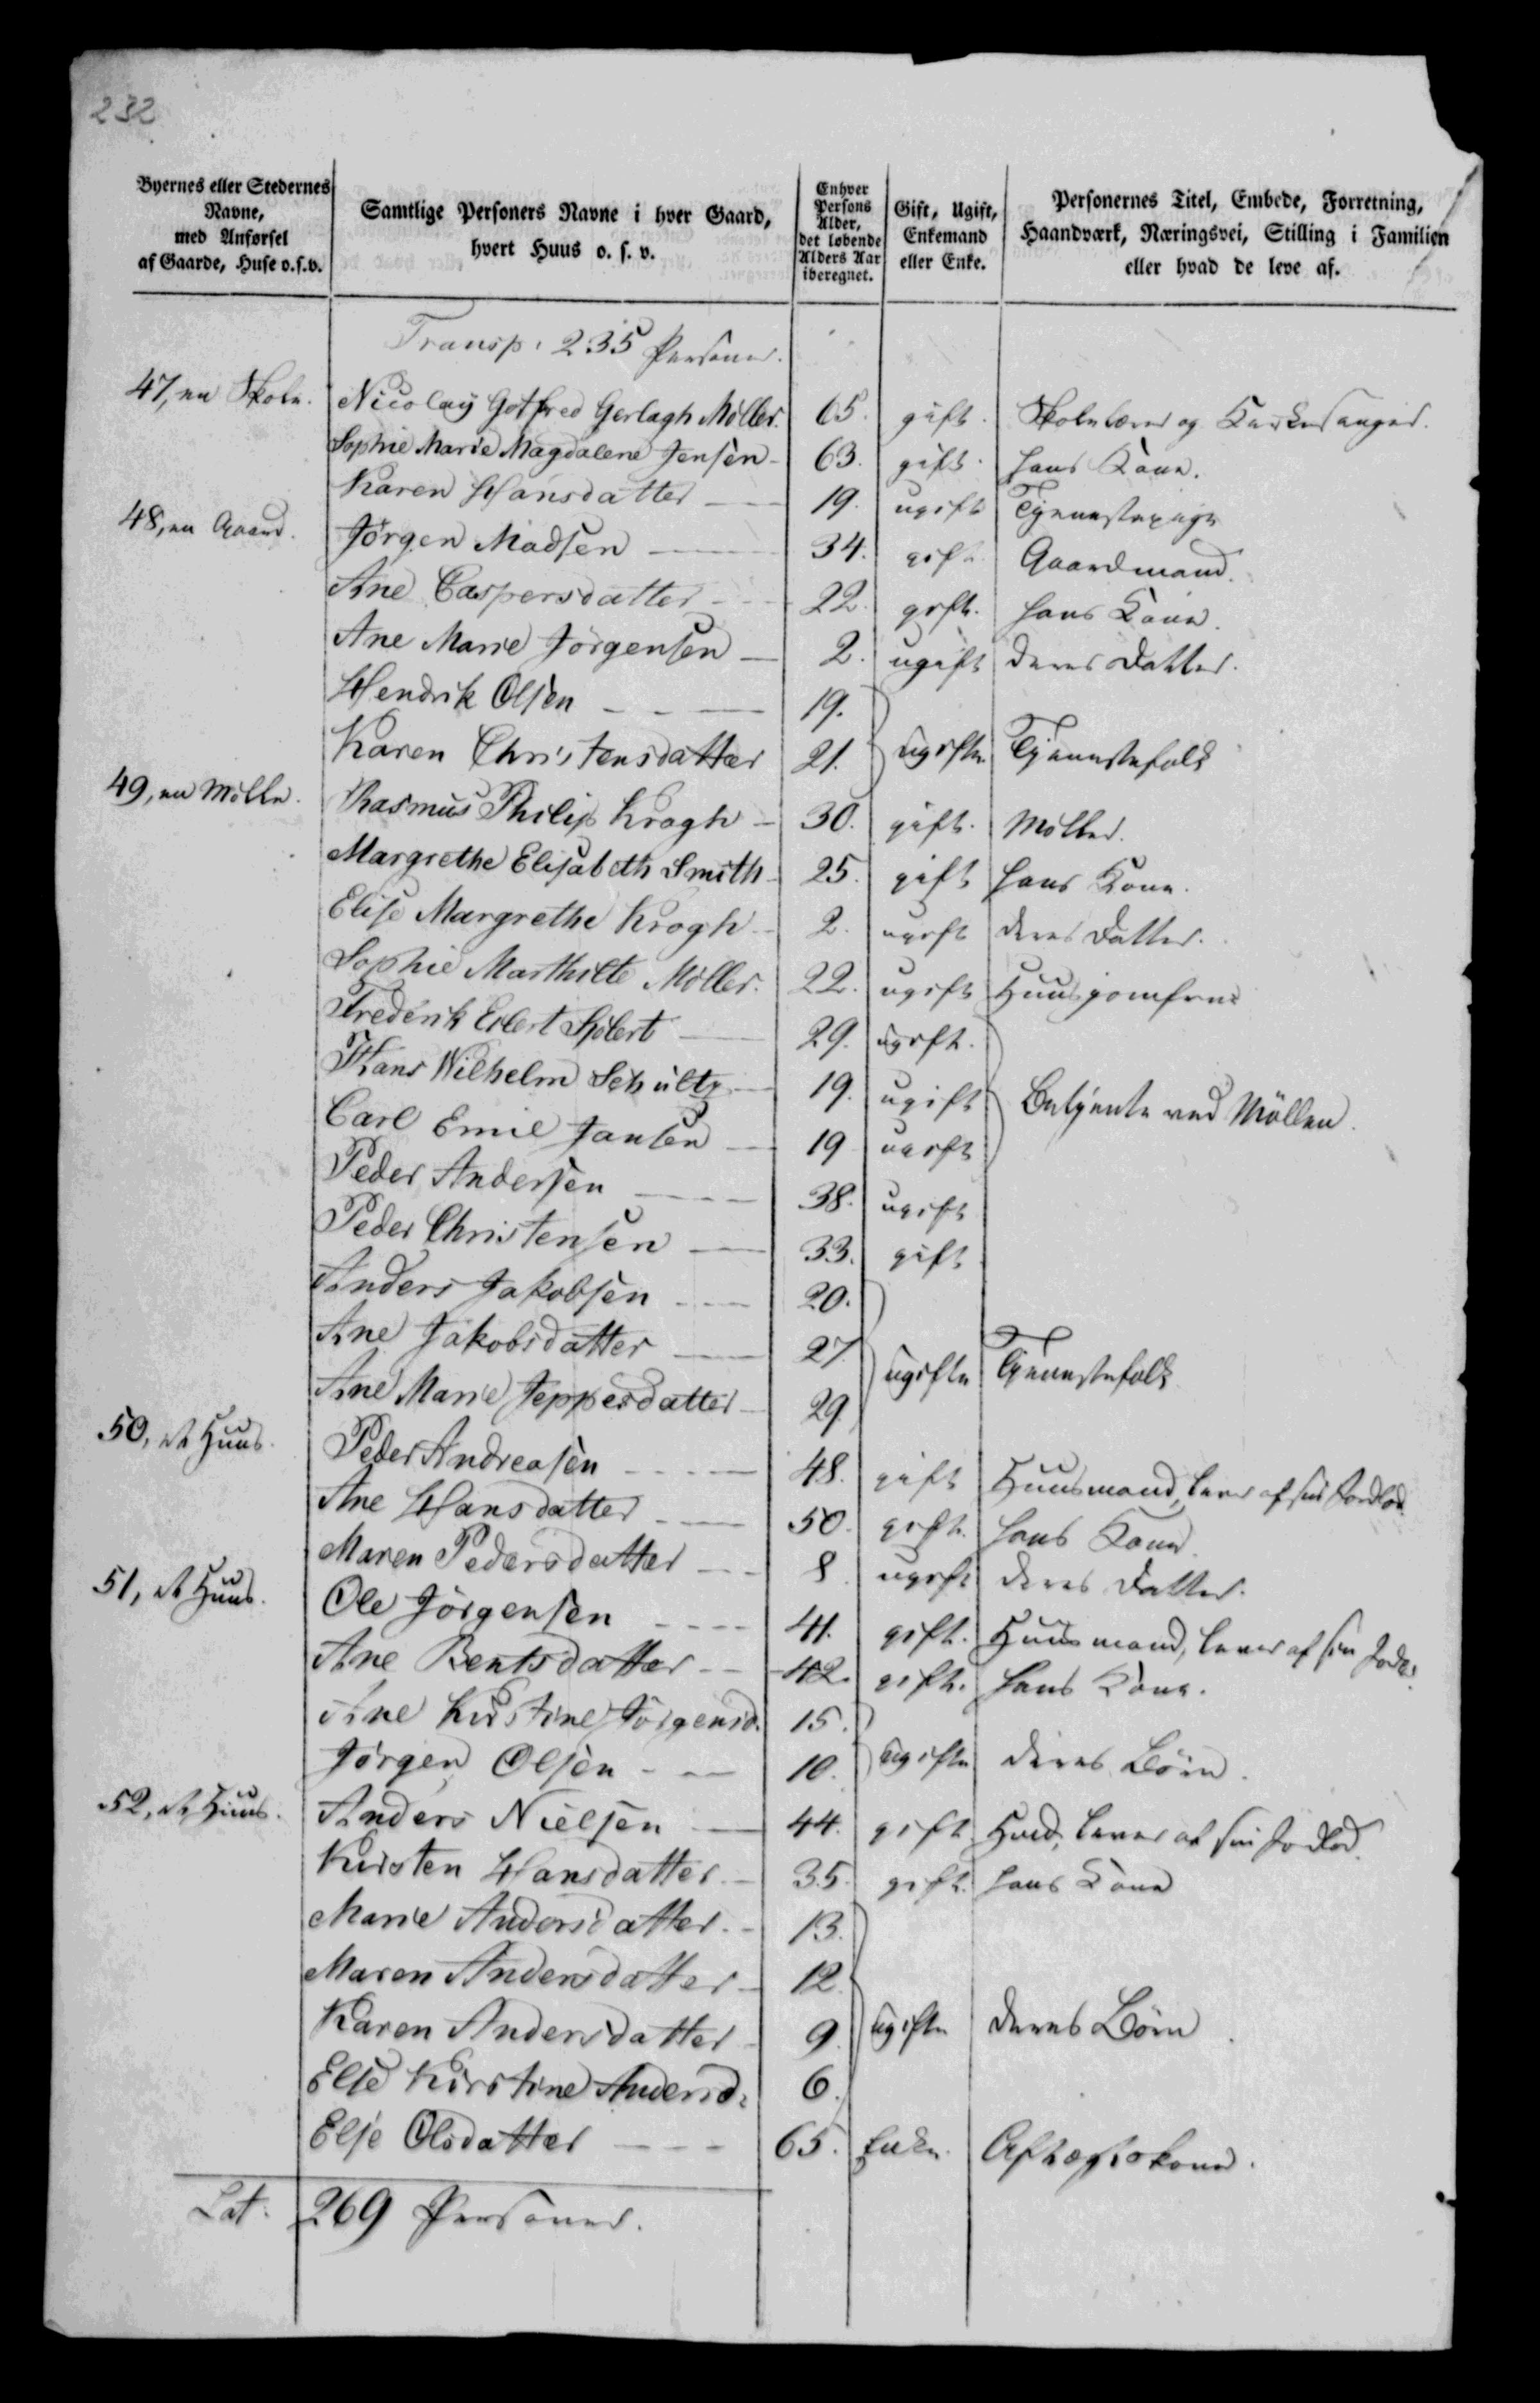 232
Byernes eller Stedernes Navne, med Anførsel af Gaarde, Huse o.s.v.
Samtlige Personers Navne i hver Gaard, hvert Huus o. s. v.
Enhver Persons Alder, det løbende Alders Aar iberegnet.
Gift, Ugift, Enkemand eller Enke.
Personernes Titel, Embede, Forretning, Haandværk, Næringsvei, Stilling i Familien eller hvad de leve af.
Transp. 235 Personer.
47, en Skole. Nicolay Gotfred Gerlagh Møller. 65. gift. Skolelærer og Kirkesanger.
Sophie Marie Magdalene Jensen - 63. gift. hans Kone.
Karen Hansdatter — 19. ugift Tjenestepige
48, en Gaard. Jørgen Madsen — 34. gift. Gaardmand.
Ane Caspersdatter - 22. gift. hans Kone.
Ane Marie Jørgensen — 2. ugift deres Datter.
Hendrik Olsen — 19.
Karen Christensdatter 21. ugifte Tjenestefolk
49, en Mølle. Rasmus Philip Krogh - 30. gift. Møller.
Margrethe Elisabeth Smith - 25. gift hans Kone.
Elise Margrethe Krogh - 2. ugift deres Datter.
Sophie Marthilte Møller. 22. ugift Huusjomfrue
Frederik Eilert — 29. ugift.
Hans Wilhelm Schultz — 19. ugift Betjente ved Møllen.
Carl Emil Jansen — 19 ugift
Peder Andersen — 38. ugift
Peder Christensen — 33. gift
Anders Jakobsen — 20.
Ane Jakobsdatter — 27. ugifte Tjenestefolk
Ane Marie Jeppesdatter - 29
50, et Huus. Peder Andreasen — 48. gift Huusmand, lever af sin Jordlod
Ane Hansdatter — 50. gift. hans Kone.
Maren Pedersdatter — 8. ugift deres Datter.
51, et Huus. Ole Jørgensen — 41. gift. Huusmand, lever af sin Jordl.
Ane Bentsdatter - 42. gift. hans Kone.
Ane Kirstine Jørgensd. 15.
Jørgen Olsen — 10. ugifte deres Børn.
52, et Huus. Anders Nielsen — 44. gift Hmd, lever af sin Jordlod.
Kirsten Hansdatter - 35. gift. hans Kone
Marie Andersdatter - 13.
Maren Andersdatter - 12.
Karen Andersdatter 9. ugifte deres Børn.
Else Kirstine Andersd. 6.
Else Olsdatter — 65. Enke. Aftægtskone.
Lat. 269 Personer.